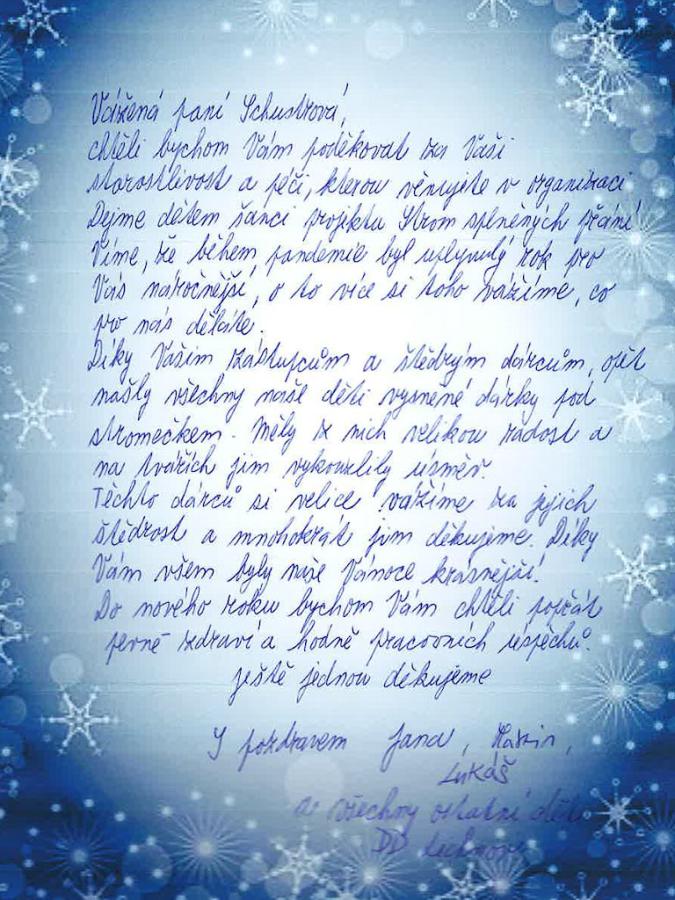 Vážená paní Schustrová,
chtěli bychom Vám poděkovat za Vaši
starostlivost a péči, kterou věnujete v organizaci
Dejme dětem šanci projektu Strom splněných přání.
Víme, že během pandemie byl uplynulý rok pro
Vás náročnější, o to více si toho vážíme, co
pro nás děláte.
Díky Vašim zástupcům a štědrým dárcům, opět
našly všechny naše děti vysněné dárky pod
stromečkem. Měly z nich velikou radost a
na tvářích jim vykouzlily úsměv.
Těchto dárců si velice vážíme za jejich
štědrost a mnohokrát jim děkujeme. Díky
Vám všem byly naše Vánoce krásnější.
Do nového roku bychom Vám chtěli popřát
pevné zdraví a hodně pracovních úspěchů.
ještě jednou děkujeme
S pozdravem Jana,
Lukáš
a všechny ostatní děti
DD